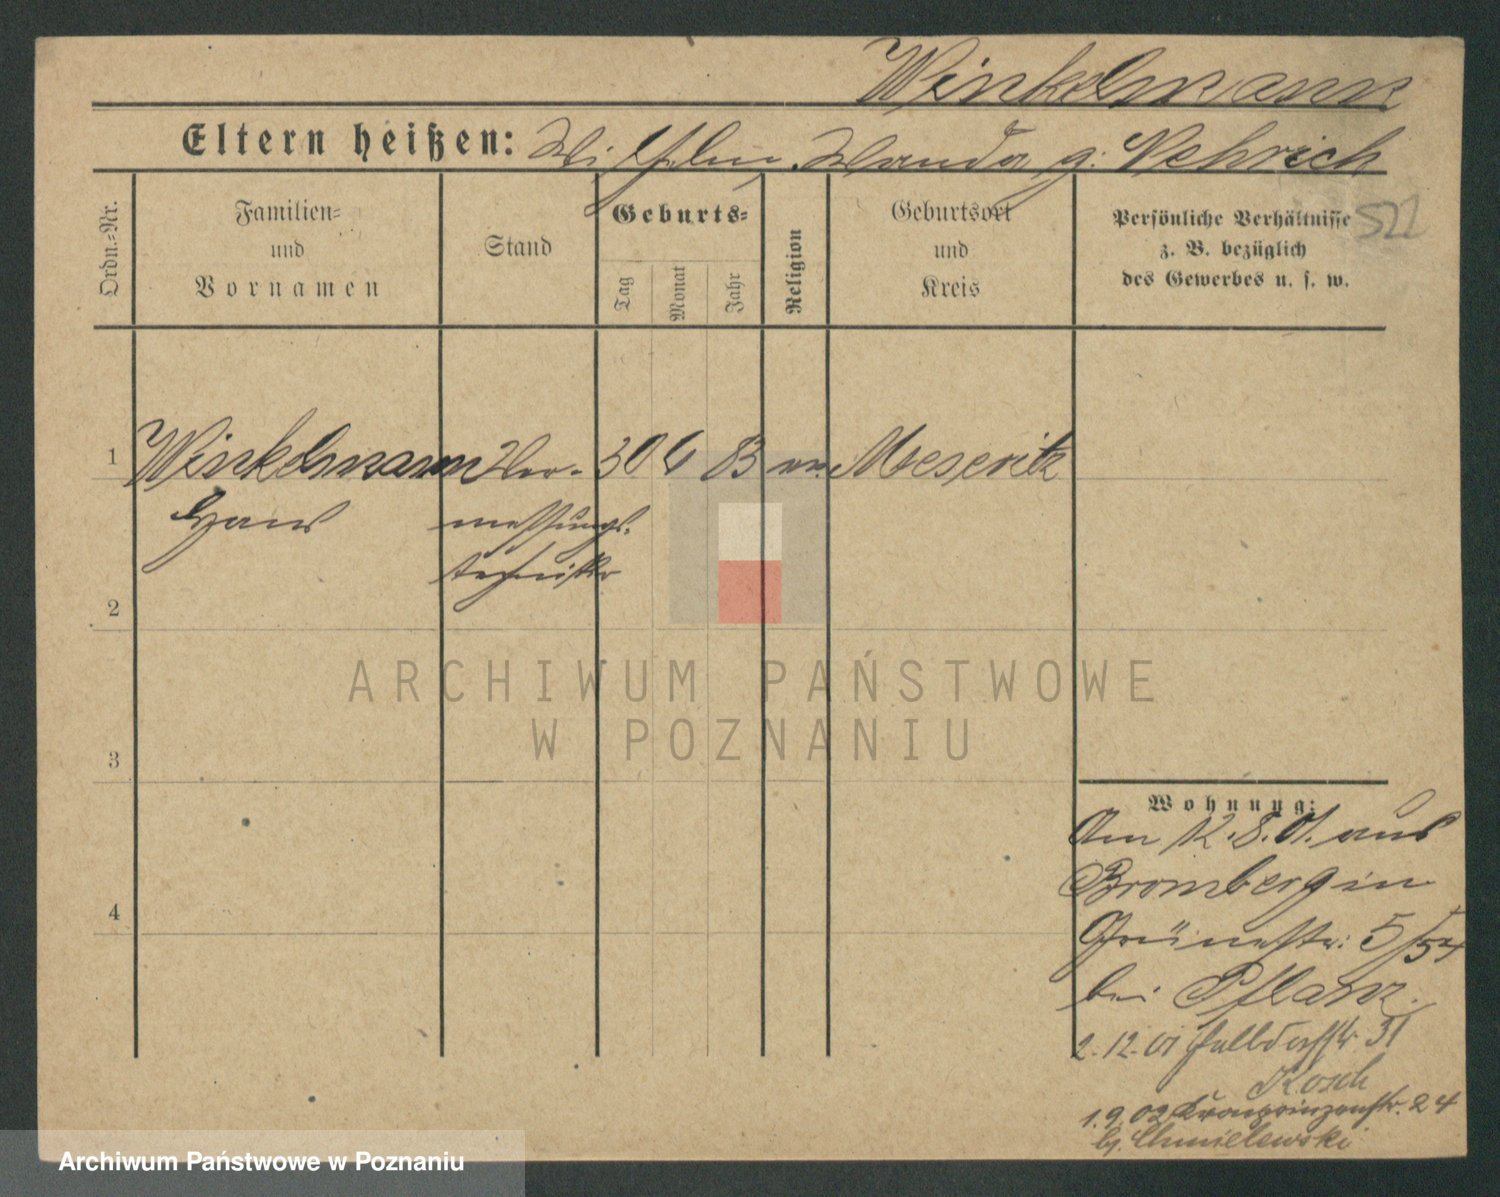 Winkelmann
Eltern heißen: Wilhelm, Wanda g: Nehrich
522
Ordn.-Nr.
Familien-
und
Vornamen
Stand
Geburts-
Tag
Monat
Jahr
Religion
Geburtsort
und
Kreis
Persönliche Verhältnisse
z. B. bezüglich
des Gewerbes u. s. w.
1
Winkelmann Ver- 30 6 83 Meseritz
Hans messungs-
techniker
2
ARCHIWUM PAŃSTWOWE
W POZNANIU
3
Wohnung:
Am 12.8.01. aus
Bromberg in
4
Grünestr: 5/54
bei Pflanz.
2.12.01 31
Kosch
1.9.02 Kronprinzenstr. 24
bj. Chmielewski
Archiwum Państwowe w Poznaniu